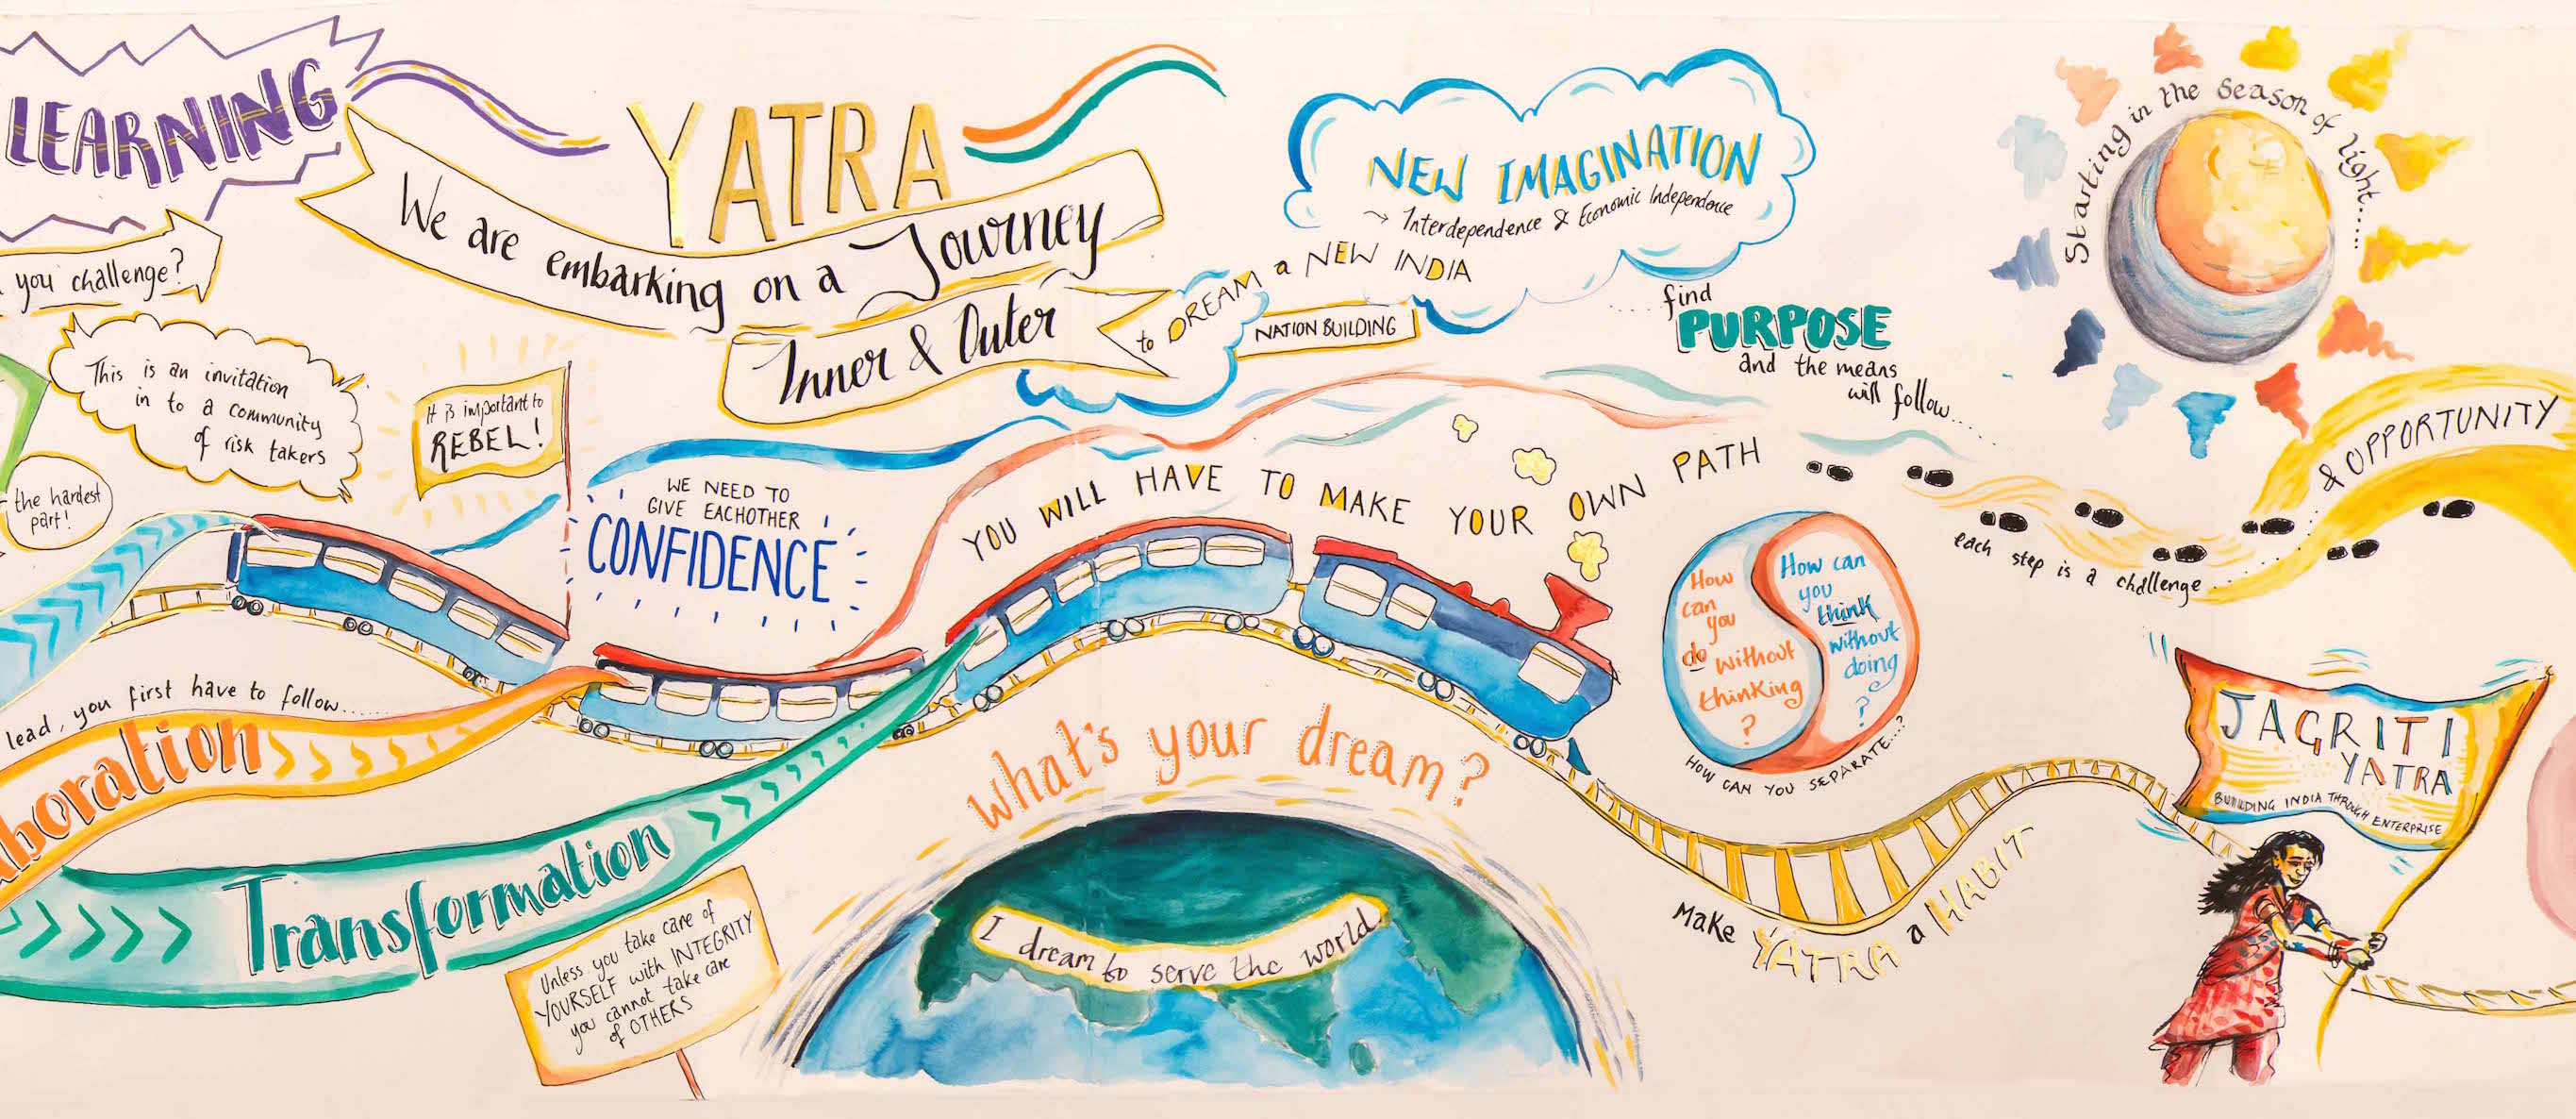 LEARNING
you challenge?
This is an invitation
in to a community
of risk takers
the hardest
part!
YATRA
We are embarking on a Journey
Inner & Outer
to DREAM a NEW INDIA
NATION BUILDING
NEW IMAGINATION
→ Interdependence & Economic Independence
find
PURPOSE
and the means
will follow...
Starting in the season of light.....
& OPPORTUNITY
It is important to
REBEL!
WE NEED TO
GIVE EACHOTHER
CONFIDENCE
YOU WILL HAVE TO MAKE YOUR OWN PATH
each step is a challenge
How
can
you
do without
thinking
?
How can
you
think
without
doing
?
HOW CAN YOU SEPARATE...?
lead, you first have to follow......
aboration
Transformation
Unless you take care of
YOURSELF with INTEGRITY
you cannot take care
of OTHERS
what's your dream?
I dream to serve the world
Make YATRA a HABIT
JAGRITI
YATRA
BUILDING INDIA THROUGH ENTERPRISE